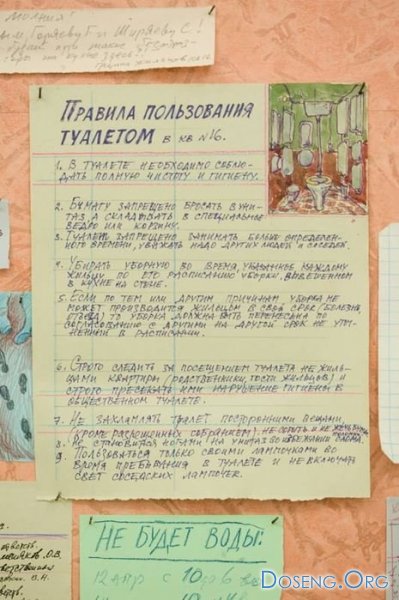 Молния
Гордееву Г. и Ширяеву С!
Правила пользования
туалетом в кв №16.
1. В туалете необходимо соблю-
дать полную чистоту и гигиену.
2. Бумагу запрещено бросать в уни-
таз, а складывать в специальное
ведро или корзину.
3. Туалет запрещено занимать более определен-
ного времени, уважать надо других людей и соседей.
4. Убирать уборную во время, указанное каждому
жильцу по его расписанию уборки, вывешенном
в кухне на стене.
5. Если по тем или другим причинам уборка не
может производится жильцом в свой срок (болезнь,
отъезд) то уборка должна быть перенесена по
согласованию с другими на другой срок не
в расписании.
6. Строго следить за посещением туалета не жиль-
цами квартиры (родственники, гости жильцов) и
строго пресекать ими нарушение гигиены в
общественном туалете.
7. Не захламлять туалет посторонними вещами,
(кроме разрешонных собранием), не сорить и не
8. Не становиться ногами на унитаз во избежании слома.
9. Пользоваться только своими лампочками во
время пребывания в туалете и не включать
свет соседских лампочек.
Не будет воды:
12 апр с 10 до 6
Doseng.Org